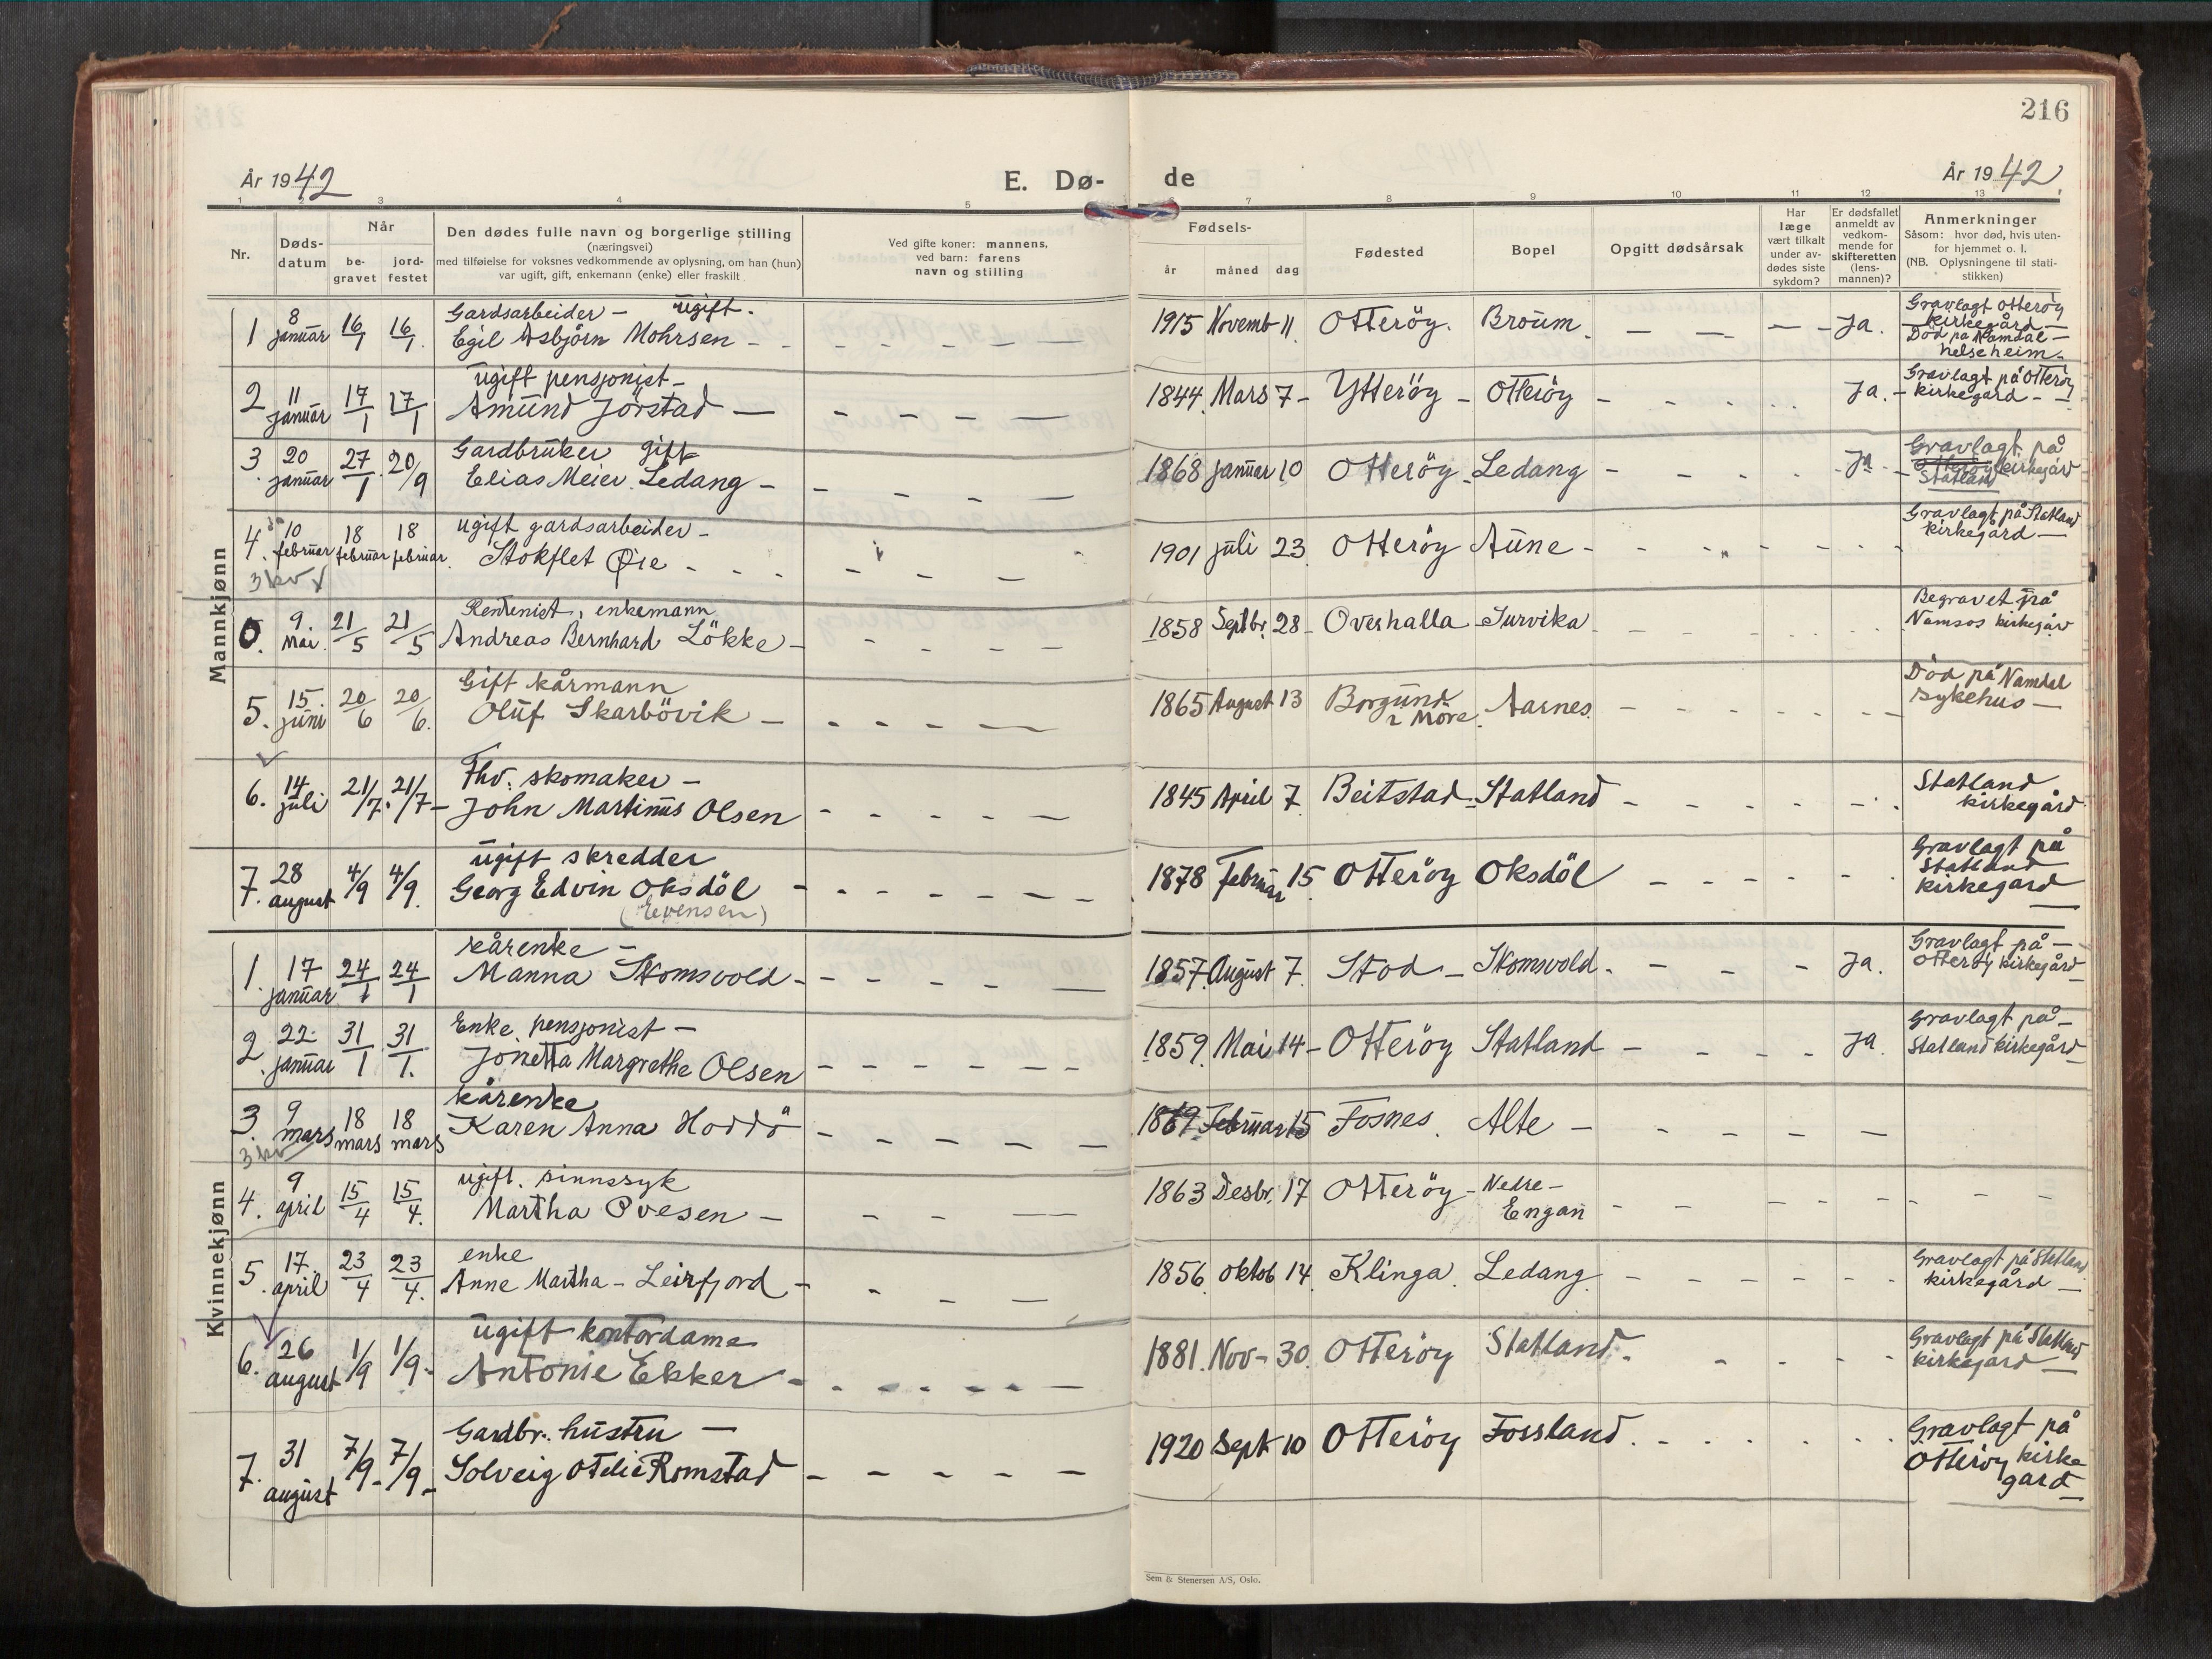 216
År 1942
E. Dø-
de
År 1942
1 2 3 4 5 7 8 9 10 11 12 13
Nr.
Døds-
datum
Når
be-
gravet
jord-
festet
Den dødes fulle navn og borgerlige stilling
(næringsvei)
med tilføielse for voksnes vedkommende av oplysning, om han (hun)
var ugift, gift, enkemann (enke) eller fraskilt
Ved gifte koner: mannens,
ved barn: farens
navn og stilling
Fødsels-
år måned dag
Fødested
Bopel
Opgitt dødsårsak
Har
læge
vært tilkalt
under av-
dødes siste
sykdom?
Er dødsfallet
anmeldt av
vedkom-
mende for
skifteretten
(lens-
mannen)?
Anmerkninger
Såsom: hvor død, hvis uten-
for hjemmet o. l.
(NB. Oplysningene til stati-
stikken)
Mannkjønn
1 8 januar 16/1 16/1. Gardsarbeider - ugift.
Egil Asbjörn Mohrsen - - - - - - 1915 Novemb 11 Otteröy. Broum. - - - - Ja.
Gravlagt Otteröy
kirkegård -
Död på Namdal -
helseheim.
2 11 januar 17/1 17/1 ugift pensjonist -
Amund Jörstad - - - - - 1844. Mars 7 - Ytteröy - Otteröy - - - - Ja. -
Gravlagt på Otteröy
kirkegard - -
3. 20 januar 27/1 20/9 Gardbruker gift
Elias Meier Ledang - - - - - 1868 januar 10 Otteröy - Ledang - - - - Ja -
Gravlagt på
Otteröy kirkegård
Statland
4. 10 februar 18 februar 18 februar. ugift gardsarbeider -
3 kv
Stokflet Øie - - - - - - 1901 juli 23. Otteröy Aune - - - - - -
Gravlagt på Statland
kirkegård -
0. 9. Mai. 21/5 21/5 Rentenist, enkemann
Andreas Bernhard Lökke - - - - - 1858 Septbr. 28 - Overhalla - Survika - - - - - -
Begravet på
Namsos kirkegård
5. 15. juni 20/6 20/6. Gift kårmann
Oluf Skarbövik - - - - - - 1865 August 13 Borgund
i Möre. Aarnes. - - - - - -
Död på Namdal
sykehus -
6. 14 juli 21/7. 21/7 - Fhv. skomaker -
John Martinus Olsen - - - - - 1845 April 7 Beitstad - Statland - - - - - -
Statland
kirkegård
7. 28 august 4/9 4/9. ugift skredder
Georg Edvin Oksdöl - - - - - - 1878 februar 15 Otteröy Oksdöl - - - - - -
(Evensen)
Gravlagt på
Statland
kirkegard
Kvinnekjønn
1. 17 januar 24/1 24/1 kårenke -
Manna Skomsvold - - - - - - 1857. August 7. Stod - Skomsvold. - - - Ja.
Gravlagt på -
Otteröy kirkegård
2. 22. januar 31/1 31/1. Enke, pensjonist -
Jonetta Margrethe Olsen - - - - - - 1859. Mai 14 - Otteröy Statland - - - - Ja.
Gravlagt på -
Statland kirkegård
3. 9 mars 18 mars 18 mars kårenke
3 kv
Karen Anna Hoddö - - - - - 1869 Februar 15 Fosnes. Alte - - - - - -
4. 9 april 15/4 15/4. ugift. sinnssyk
Martha Ovesen - - - - - 1863 Desbr. 17 Otteröy - Nedre -
Engan - - - - - - - -
5. 17. april 23/4 23/4. enke
Anne Martha - Leirfjord - - - - 1856. Oktob 14. Klinga. Ledang. - - - - - -
Gravlagt på Statland
kirkegård -
6. 26 august 1/9 1/9 - ugift kontordame
Antonie Ekker - - - - - - - 1881. Nov - 30. Otteröy Statland. - - - -
Gravlagt på Statland
kirkegard -
7. 31 august 7/9 - 7/9 - Gardbr. hustru -
Solveig Otelie Romstad - - - - - 1920 Sept 10 Otteröy Fossland. - - - - - -
Gravlagt på
Otteröy kirke
gard -
Sem & Stenersen A/S, Oslo.